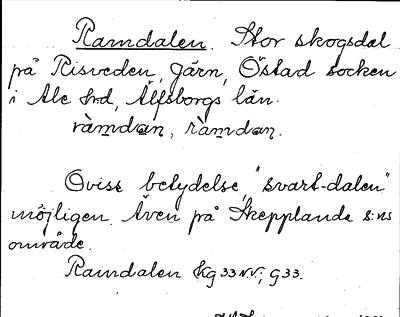 Ramdalen. Stor skogsdal
på Risveden, Järn, Östad socken
i Ale hrd, Älfsborgs län.
ràmdan, ràmdan.
Oviss betydelse, "svart-dalen"
möjligen. Även på Skepplanda s:ns
område.
Ramdalen Kg 33 N.V.; G 33.